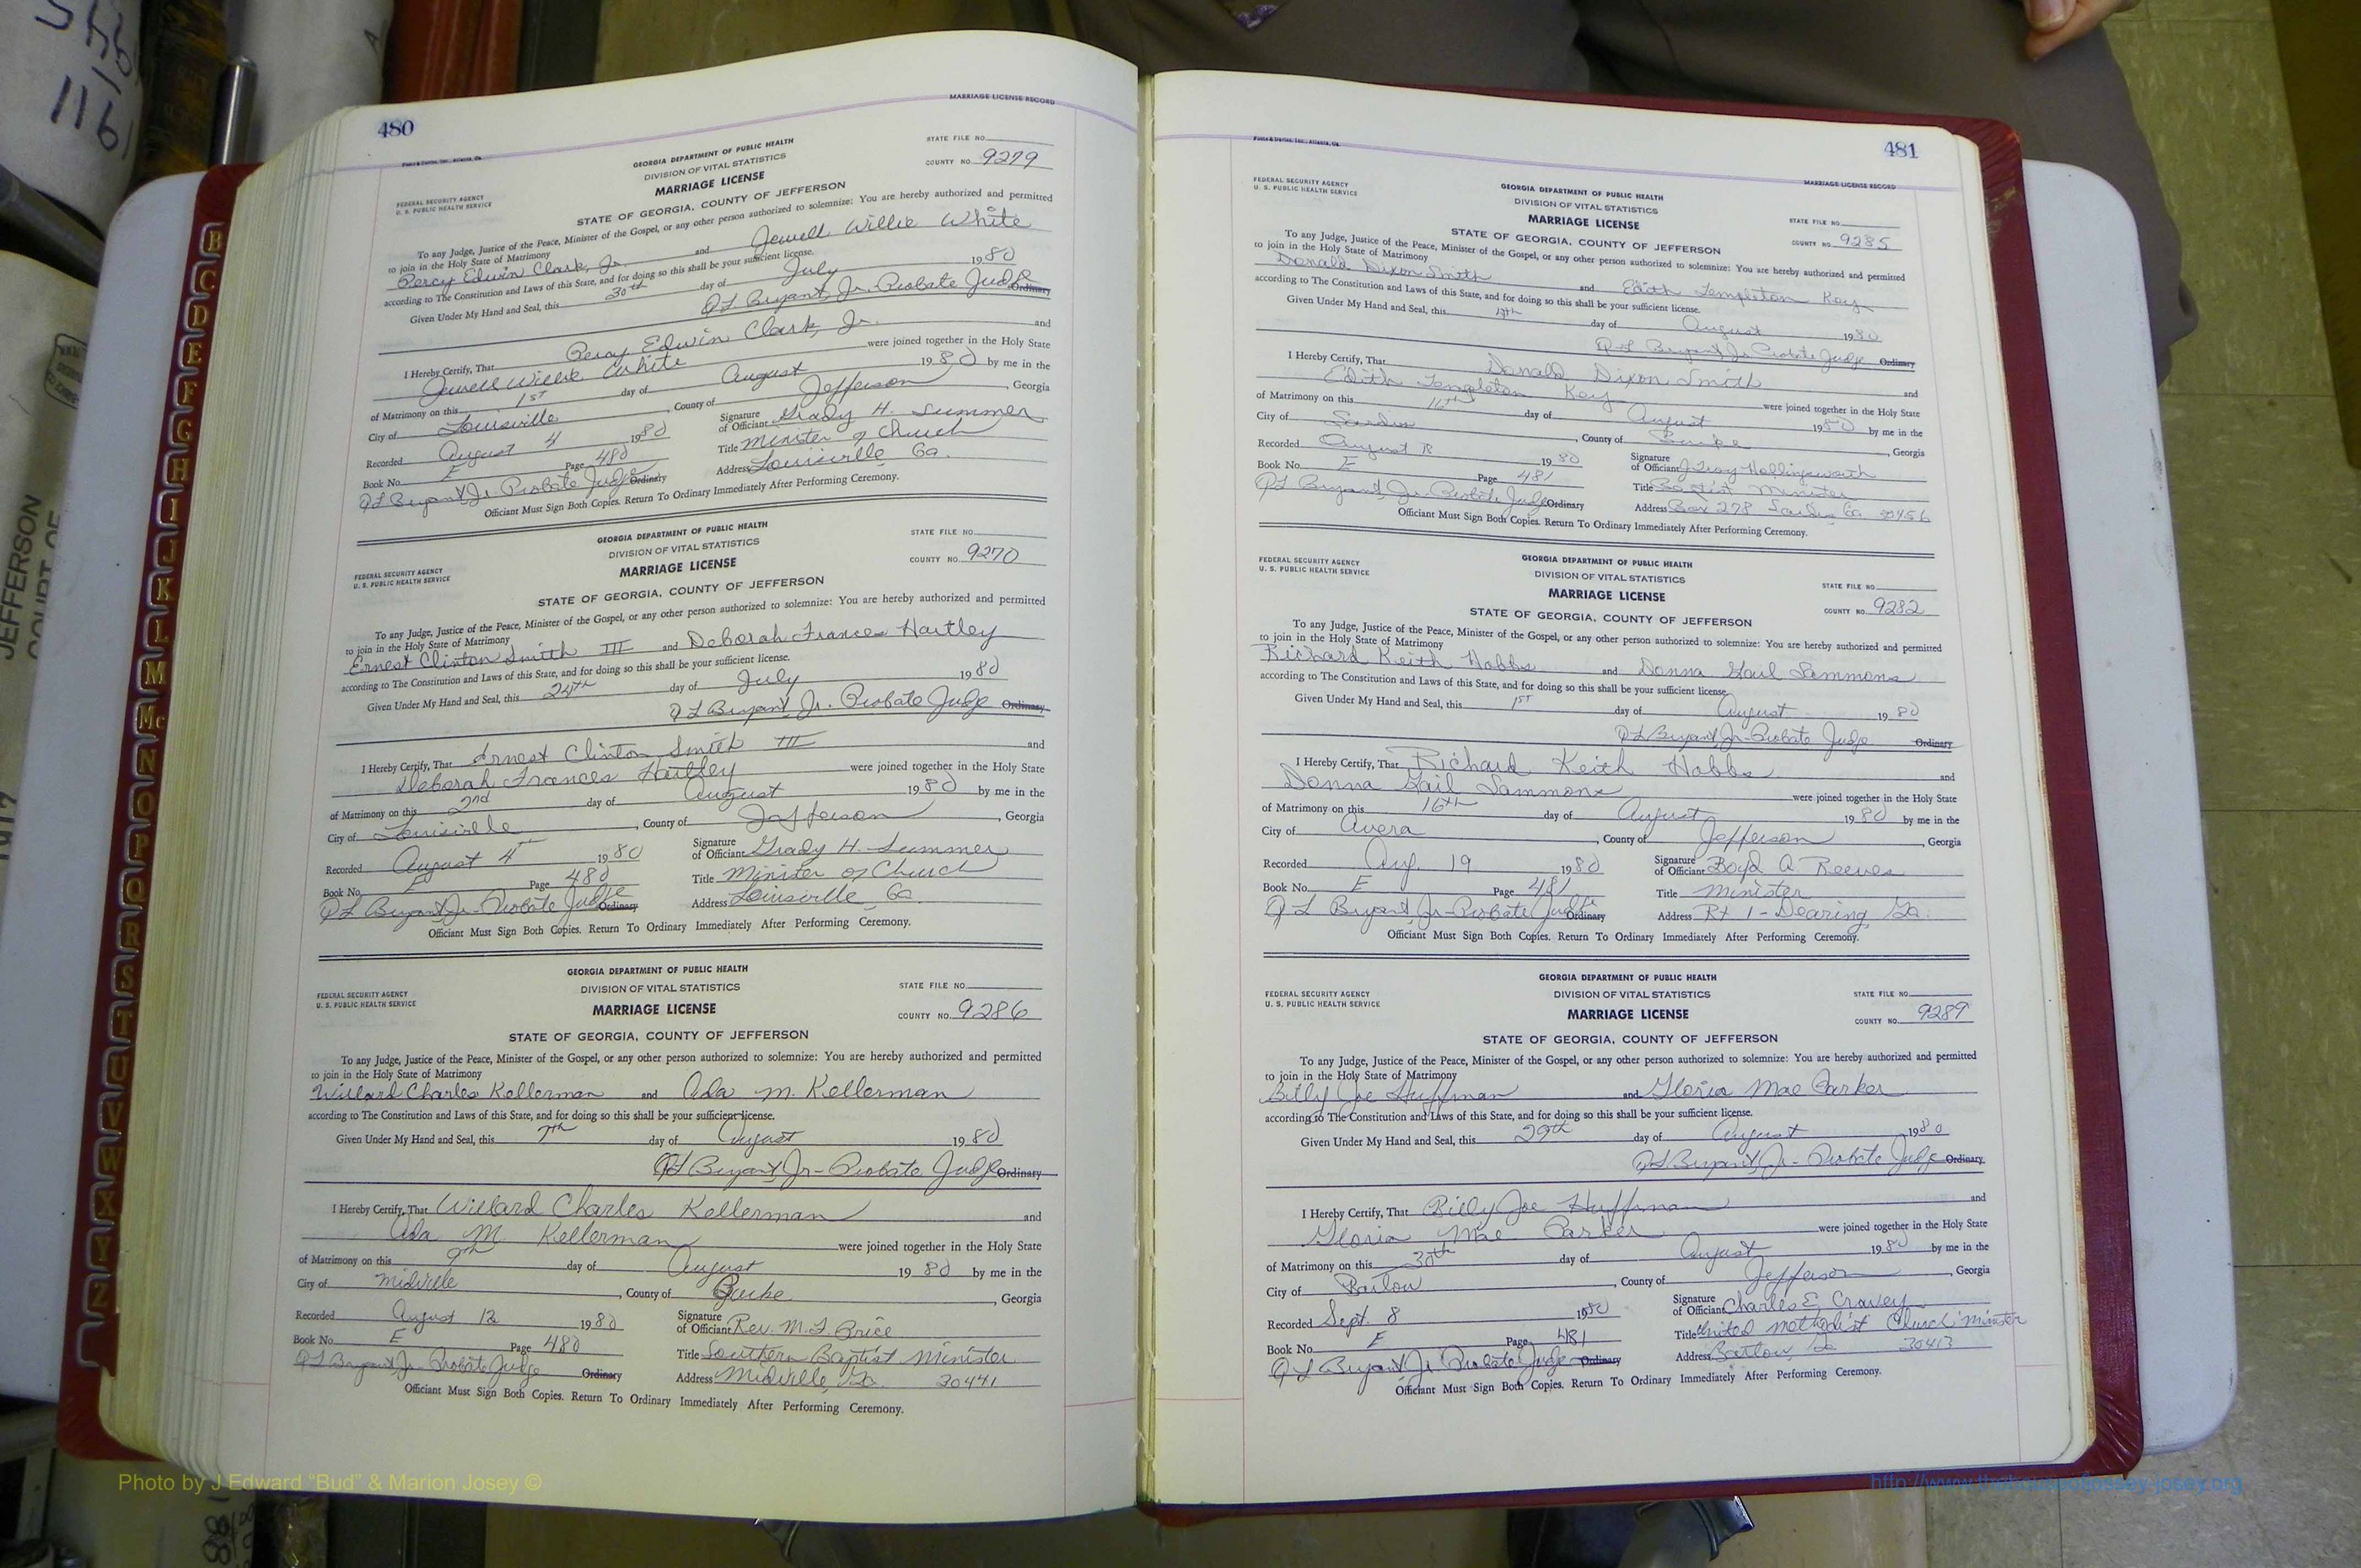 480
MARRIAGE LICENSE RECORD
Foote & Davies, Inc., Atlanta, Ga.
GEORGIA DEPARTMENT OF PUBLIC HEALTH
DIVISION OF VITAL STATISTICS
MARRIAGE LICENSE
STATE FILE NO.
COUNTY NO. 9279
FEDERAL SECURITY AGENCY
U. S. PUBLIC HEALTH SERVICE
STATE OF GEORGIA, COUNTY OF JEFFERSON
To any Judge, Justice of the Peace, Minister of the Gospel, or any other person authorized to solemnize: You are hereby authorized and permitted
to join in the Holy State of Matrimony
Percy Edwin Clark, Jr. and Jewell Willie White
according to The Constitution and Laws of this State, and for doing so this shall be your sufficient license.
Given Under My Hand and Seal, this 30th day of July 1980
Q L Bryant, Jr. Probate Judge Ordinary
I Hereby Certify, That Percy Edwin Clark, Jr. and
Jewell Willie White were joined together in the Holy State
of Matrimony on this 1st day of August 1980 by me in the
City of Louisville, County of Jefferson, Georgia
Recorded August 4 1980 Signature of Officiant Grady H. Summer
Book No. E Page 480 Title Minister of Church
Q L Bryant, Jr. Probate Judge Ordinary Address Louisville Ga.
Officiant Must Sign Both Copies. Return To Ordinary Immediately After Performing Ceremony.
GEORGIA DEPARTMENT OF PUBLIC HEALTH
DIVISION OF VITAL STATISTICS
MARRIAGE LICENSE
STATE FILE NO.
COUNTY NO. 9270
FEDERAL SECURITY AGENCY
U. S. PUBLIC HEALTH SERVICE
STATE OF GEORGIA, COUNTY OF JEFFERSON
To any Judge, Justice of the Peace, Minister of the Gospel, or any other person authorized to solemnize: You are hereby authorized and permitted
to join in the Holy State of Matrimony
Ernest Clinton Smith III and Deborah Frances Hartley
according to The Constitution and Laws of this State, and for doing so this shall be your sufficient license.
Given Under My Hand and Seal, this 24th day of July 1980
Q L Bryant, Jr. Probate Judge Ordinary
I Hereby Certify, That Ernest Clinton Smith III and
Deborah Frances Hartley were joined together in the Holy State
of Matrimony on this 2nd day of August 1980 by me in the
City of Louisville, County of Jefferson, Georgia
Recorded August 4 1980 Signature of Officiant Grady H. Summer
Book No. E Page 480 Title Minister of Church
Q L Bryant Jr-Probate Judge Ordinary Address Louisville Ga.
Officiant Must Sign Both Copies. Return To Ordinary Immediately After Performing Ceremony.
GEORGIA DEPARTMENT OF PUBLIC HEALTH
DIVISION OF VITAL STATISTICS
MARRIAGE LICENSE
STATE FILE NO.
COUNTY NO. 9286
FEDERAL SECURITY AGENCY
U. S. PUBLIC HEALTH SERVICE
STATE OF GEORGIA, COUNTY OF JEFFERSON
To any Judge, Justice of the Peace, Minister of the Gospel, or any other person authorized to solemnize: You are hereby authorized and permitted
to join in the Holy State of Matrimony
Willard Charles Kellerman and Ada M. Kellerman
according to The Constitution and Laws of this State, and for doing so this shall be your sufficient license.
Given Under My Hand and Seal, this 7th day of August 1980
Q L Bryant, Jr-Probate Judge Ordinary
I Hereby Certify, That Willard Charles Kellerman and
Ada M. Kellerman were joined together in the Holy State
of Matrimony on this 9th day of August 1980 by me in the
City of Midville, County of Burke, Georgia
Recorded August 12 1980 Signature of Officiant Rev. M. L. Price
Book No. E Page 480 Title Southern Baptist Minister
Q L Bryant Jr-Probate Judge Ordinary Address Midville, Ga. 30441
Officiant Must Sign Both Copies. Return To Ordinary Immediately After Performing Ceremony.
481
MARRIAGE LICENSE RECORD
Foote & Davies, Inc., Atlanta, Ga.
FEDERAL SECURITY AGENCY
U. S. PUBLIC HEALTH SERVICE
GEORGIA DEPARTMENT OF PUBLIC HEALTH
DIVISION OF VITAL STATISTICS
MARRIAGE LICENSE
STATE FILE NO.
COUNTY NO. 9285
STATE OF GEORGIA, COUNTY OF JEFFERSON
To any Judge, Justice of the Peace, Minister of the Gospel, or any other person authorized to solemnize: You are hereby authorized and permitted
to join in the Holy State of Matrimony
Donald Dixon Smith and Edith Templeton Key
according to The Constitution and Laws of this State, and for doing so this shall be your sufficient license.
Given Under My Hand and Seal, this day of August 1980
Q L Bryant Jr Probate Judge Ordinary
I Hereby Certify, That Donald Dixon Smith and
Edith Templeton Key were joined together in the Holy State
of Matrimony on this 16th day of August 1980 by me in the
City of Sardis, County of Burke, Georgia
Recorded August 18 1980 Signature of Officiant J. Troy Hollingsworth
Book No. E Page 481 Title Baptist Minister
Q L Bryant, Jr. Probate Judge Ordinary Address Box 278 Sardis Ga 30456
Officiant Must Sign Both Copies. Return To Ordinary Immediately After Performing Ceremony.
FEDERAL SECURITY AGENCY
U. S. PUBLIC HEALTH SERVICE
GEORGIA DEPARTMENT OF PUBLIC HEALTH
DIVISION OF VITAL STATISTICS
MARRIAGE LICENSE
STATE FILE NO.
COUNTY NO. 9282
STATE OF GEORGIA, COUNTY OF JEFFERSON
To any Judge, Justice of the Peace, Minister of the Gospel, or any other person authorized to solemnize: You are hereby authorized and permitted
to join in the Holy State of Matrimony
Richard Keith Hobbs and Donna Gail Sammons
according to The Constitution and Laws of this State, and for doing so this shall be your sufficient license.
Given Under My Hand and Seal, this 1st day of August 1980
Q L Bryant, Jr-Probate Judge Ordinary
I Hereby Certify, That Richard Keith Hobbs and
Donna Gail Sammons were joined together in the Holy State
of Matrimony on this 16th day of August 1980 by me in the
City of Avera, County of Jefferson, Georgia
Recorded Aug. 19 1980 Signature of Officiant Boyd A Reeves
Book No. E Page 481 Title Minister
Q L Bryant, Jr-Probate Judge Ordinary Address Rt 1 - Dearing, Ga.
Officiant Must Sign Both Copies. Return To Ordinary Immediately After Performing Ceremony.
GEORGIA DEPARTMENT OF PUBLIC HEALTH
DIVISION OF VITAL STATISTICS
MARRIAGE LICENSE
STATE FILE NO.
COUNTY NO. 9289
FEDERAL SECURITY AGENCY
U. S. PUBLIC HEALTH SERVICE
STATE OF GEORGIA, COUNTY OF JEFFERSON
To any Judge, Justice of the Peace, Minister of the Gospel, or any other person authorized to solemnize: You are hereby authorized and permitted
to join in the Holy State of Matrimony
Billy Joe Huffman and Gloria Mae Parker
according to The Constitution and Laws of this State, and for doing so this shall be your sufficient license.
Given Under My Hand and Seal, this 29th day of August 1980
Q L Bryant, Jr-Probate Judge Ordinary
I Hereby Certify, That Billy Joe Huffman and
Gloria Mae Parker were joined together in the Holy State
of Matrimony on this 30th day of August 1980 by me in the
City of Bartow, County of Jefferson, Georgia
Recorded Sept. 8 1980 Signature of Officiant Charles E. Cravey
Book No. E Page 481 Title United Methodist Church Minister
Q L Bryant, Jr Probate Judge Ordinary Address Bartow, Ga 30413
Officiant Must Sign Both Copies. Return To Ordinary Immediately After Performing Ceremony.
B
C
D
E
F
G
H
I
J
K
L
M
Mc
N
O
P
Q
R
S
T
U
V
W
X
Y
Z
JEFFERSON
COURT OF
Photo by J Edward “Bud” & Marion Josey ©
http://www.thehouseofjossey-josey.org